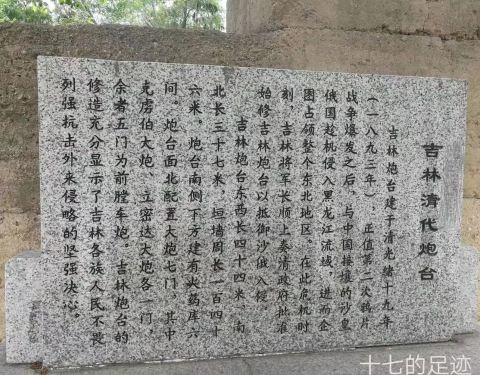 吉林清代炮台
吉林炮台建于清光绪十九年
(一八九三年)，正值第二次鸦片
战争爆发之后，与中国接壤的沙皇
俄国趁机侵入黑龙江流域，进而企
图占领整个东北地区。在此危机时
刻，吉林将军长顺上奏清政府批准
始修吉林炮台以抵御沙俄入侵
吉林炮台东西长四十四米，南
北长三十七米，垣墙周长一百四十
六米。炮台南侧下方建有火药库六
间。炮台面北配置大炮七门，其中
克虏伯大炮、立密达大炮各一门，
余者五门为前膛车炮。吉林炮台的
修造充分显示了吉林各族人民不畏
列强抗击外来侵略的坚强决心。
十七的足迹